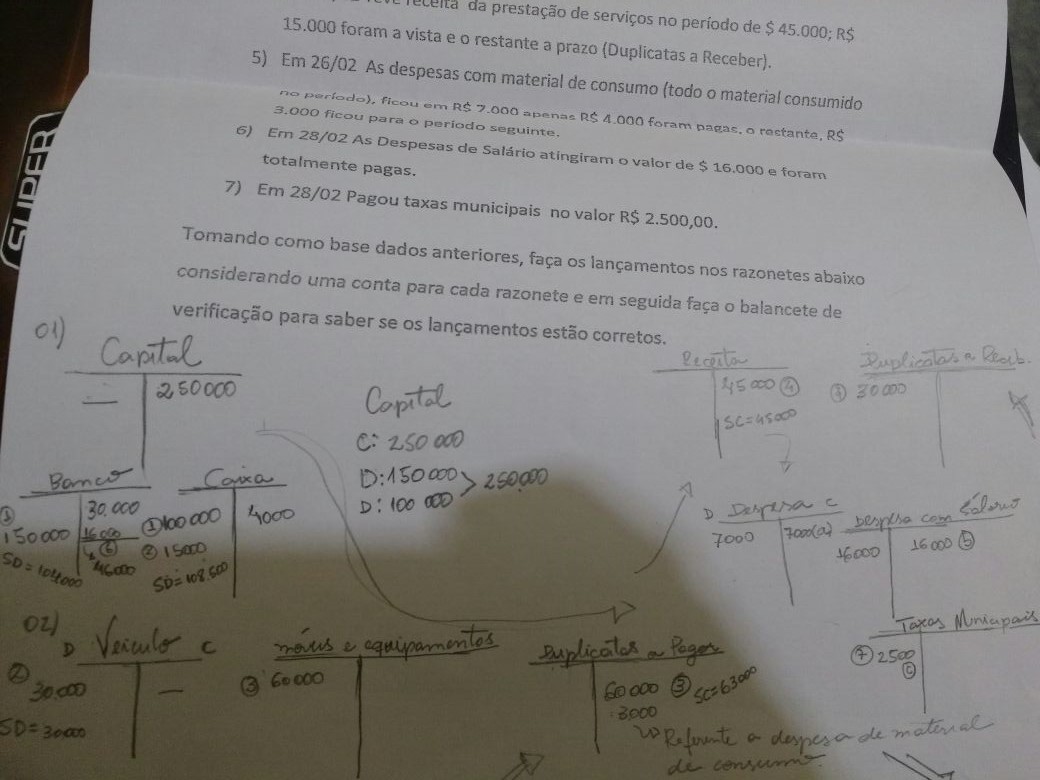 receita da prestação de serviços no período de $ 45.000; R$
15.000 foram a vista e o restante a prazo (Duplicatas a Receber).
5) Em 26/02 As despesas com material de consumo (todo o material consumido
no período), ficou em R$ 7.000 apenas R$ 4.000 foram pagas, o restante, R$
3.000 ficou para o período seguinte.
6) Em 28/02 As Despesas de Salário atingiram o valor de $ 16.000 e foram
totalmente pagas.
7) Em 28/02 Pagou taxas municipais no valor R$ 2.500,00.
Tomando como base dados anteriores, faça os lançamentos nos razonetes abaixo
considerando uma conta para cada razonete e em seguida faça o balancete de
verificação para saber se os lançamentos estão corretos.
SUPER
01)
Capital
— 250000
Capital
C: 250 000
D: 150 000 > 250.000
D: 100 000
Receita
45000 ④
SC=45000
Duplicatas a Receb.
30000
Banco
30.000
150000 16000
⑥
46000
SD=104000
Caixa
① 100 000 4000
② 15000
SD=108.500
D Despesa C
7000 7000(a)
Despesa com Salário
16000 16000 ⓑ
02)
D Veiculo C
②
30.000 —
SD=30000
móveis e equipamentos
③ 60000
Duplicatas a Pagar
60000 ③ SC=63000
3000
Referente a despesa de material
de consumo.
Taxas Municipais
⑦ 2500
ⓒ